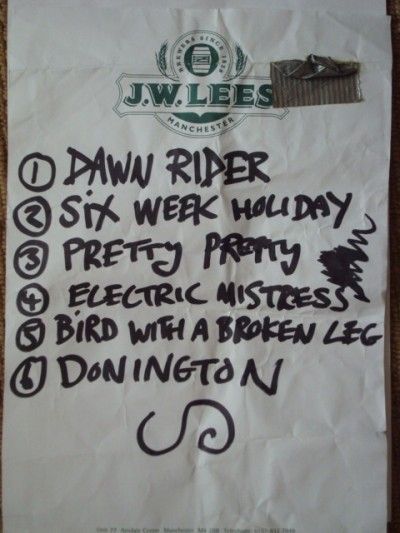 BREWERS SINCE 1828
J.W. LEES
MANCHESTER
1 DAWN RIDER
2 SIX WEEK HOLIDAY
3 PRETTY PRETTY
4 ELECTRIC MISTRESS
5 BIRD WITH A BROKEN LEG
6 DONINGTON